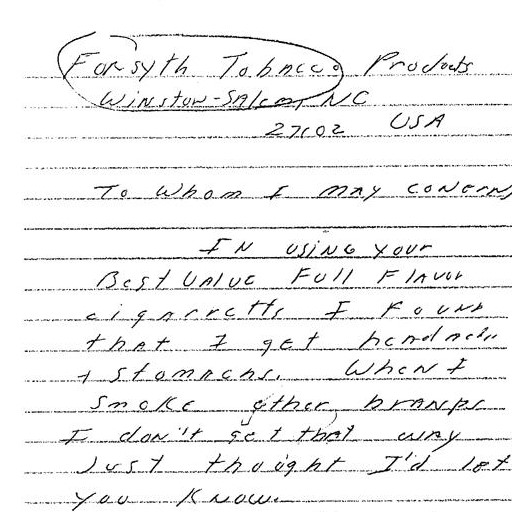 Forsyth Tobacco Products
Winston-Salem, NC
27102 USA
To Whom I may concern,
In using your
Best Value Full Flavor
cigaretts I found
that I get headach
+ stomachs. When I
smoke other brands
I don't get that way
Just thought I'd let
you know.